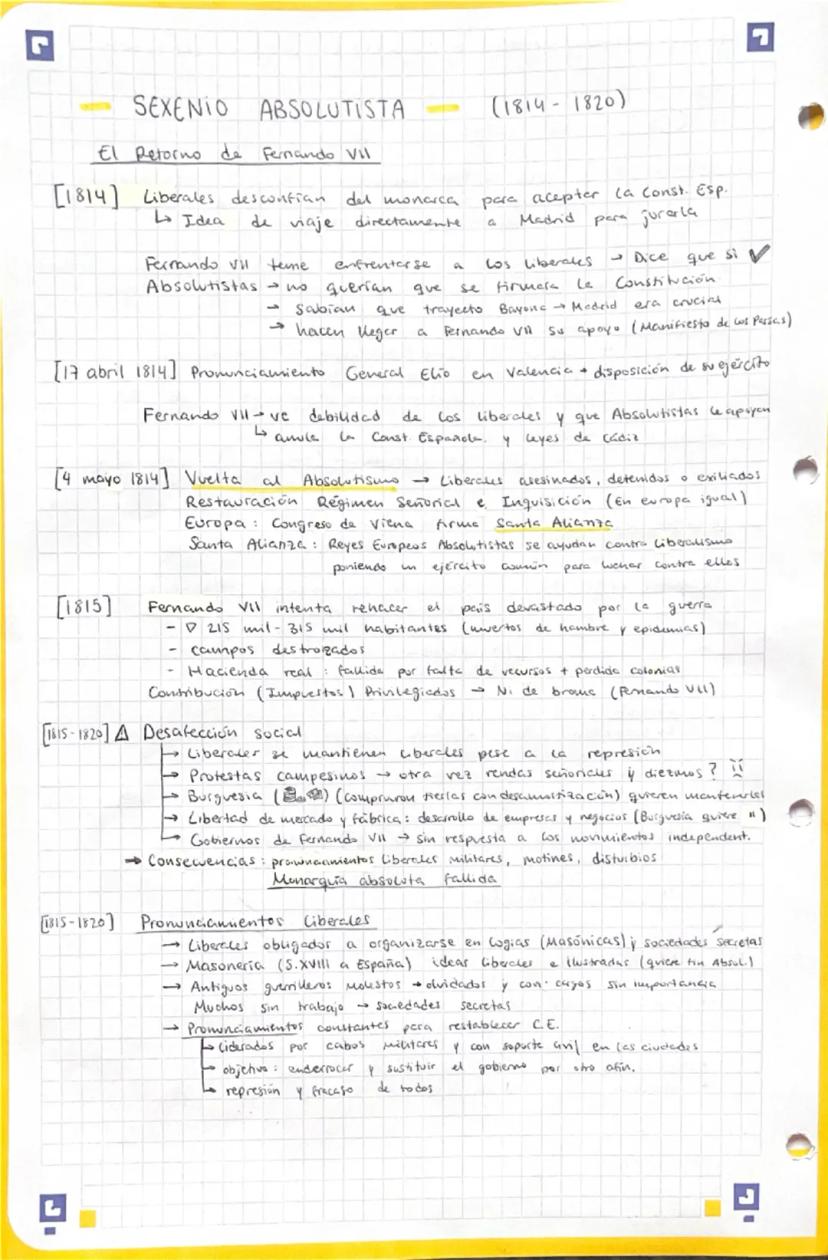 SEXENIO ABSOLUTISTA (1814 - 1820)
El Retorno de Fernando VII
[1814] Liberales desconfían del monarca para aceptar la Const. Esp.
↳ Idea de viaje directamente a Madrid para jurarla
Fernando VII teme enfrentarse a los liberales → Dice que si ✔
Absolutistas → no querían que se firmara la Constitución
→ sabían que trayecto Bayona → Madrid era crucial
→ hacen llegar a Fernando VII su apoyo (Manifiesto de los Persas)
[17 abril 1814] Pronunciamiento General Elío en Valencia + disposición de su ejército
Fernando VII → ve debilidad de los liberales y que Absolutistas le apoyan
↳ anula la Const. Española. y leyes de cádiz
[4 mayo 1814] Vuelta al Absolutismo → Liberales asesinados, detenidos o exiliados
Restauración Régimen Señorial e Inquisición (En europa igual)
Europa: Congreso de Viena firma Santa Alianza
Santa Alianza: Reyes Europeos Absolutistas se ayudan contra Liberalismo
poniendo un ejército común para luchar contra ellos
[1815] Fernando VII intenta rehacer el país devastado por la guerra
- ∇ 215 mil - 315 mil habitantes (muertos de hambre y epidemias)
- campos destrozados
- Hacienda real: fallida por falta de recursos + perdida colonias
Contribución (Impuestos) Privilegiados → Ni de broma (Fernando VII)
[1815-1820] ⚠ Desafección social
→ Liberales se mantienen liberales pese a la represión
→ Protestas campesinos → otra vez rentas señoriales y diezmos?
→ Burguesía (compraron tierras con desamortización) quieren mantenerlas
→ Libertad de mercado y fábrica: desarrollo de empresas y negocios (Burguesía quiere ")
→ Gobiernos de Fernando VII → sin respuesta a los movimientos independent.
→ Consecuencias: pronunciamientos liberales militares, motines, disturbios
Monarquía absoluta fallida
[1815-1820] Pronunciamientos Liberales
→ Liberales obligados a organizarse en logias (Masónicas) y sociedades secretas
→ Masonería (S.XVIII a España) ideas liberales e ilustradas (quiere fin Absol.)
→ Antiguos guerrilleros molestos → olvidados y con sin importancia
Muchos sin trabajo → sociedades secretas
→ Pronunciamientos constantes para restablecer C.E.
→ Liderados por cabos militares y con soporte civil en las ciudades
→ objetivo: enderrocar y sustituir el gobierno por otro afín.
→ represión y fracaso de todos